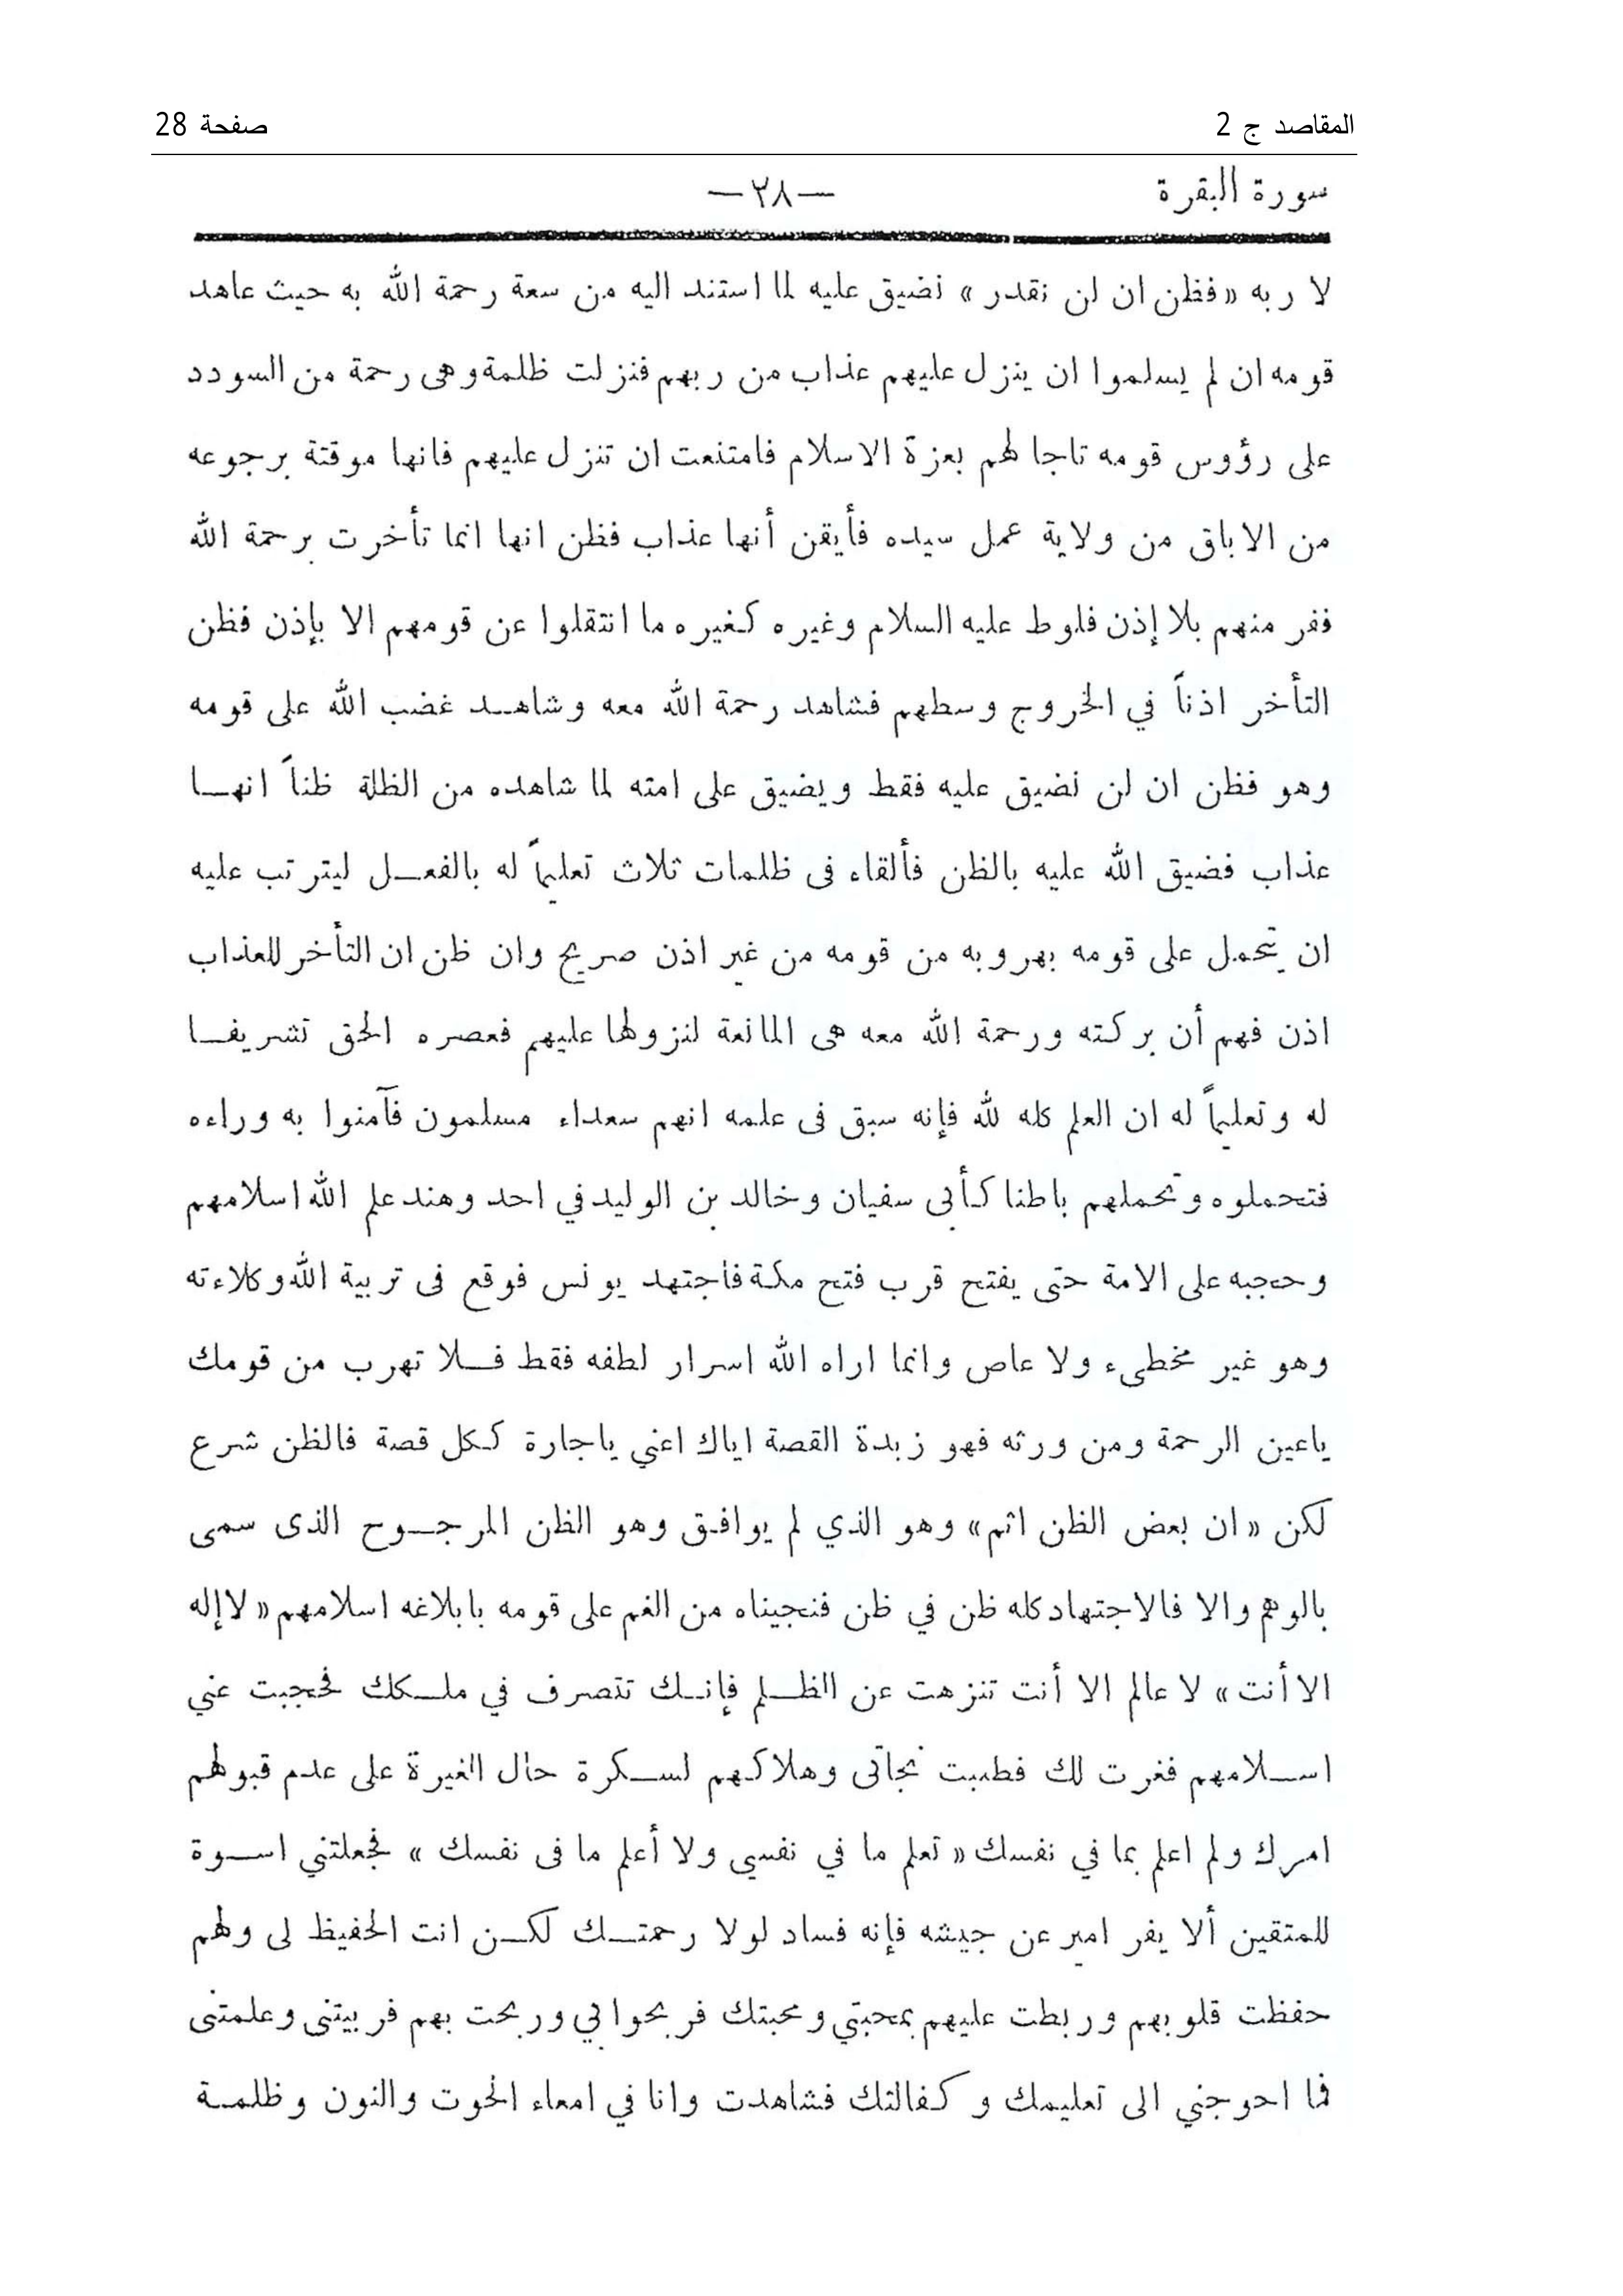 المقاصد ج 2 صفحة 28
سورة البقرة —٢٨—
لا ربه «فظن ان لن نقدر» نضيق عليه لما استند اليه من سعة رحمة الله به حيث عاهد
قومه ان لم يسلموا ان ينزل عليهم عذاب من ربهم فنزلت ظلمة وهى رحمة من السودد
على رؤوس قومه تاجا لهم بعزة الاسلام فامتنعت ان تنزل عليهم فانها موقتة برجوعه
من الاباق من ولاية عمل سيده فأيقن أنها عذاب فظن انها انما تأخرت برحمة الله
ففر منهم بلا إذن فلوط عليه السلام وغيره كغيره ما انتقلوا عن قومهم الا بإذن فظن
التأخر اذناً في الخروج وسطهم فشاهد رحمة الله معه وشاهد غضب الله على قومه
وهو فظن ان لن نضيق عليه فقط ويضيق على امته لما شاهده من الظلة ظناً انها
عذاب فضيق الله عليه بالظن فألقاء فى ظلمات ثلاث تعليماً له بالفعل ليترتب عليه
ان يتحمل على قومه بهروبه من قومه من غير اذن صريح وان ظن ان التأخر للعذاب
اذن فهم أن بركته ورحمة الله معه هى المانعة لنزولها عليهم فعصره الحق تشريفا
له وتعليماً له ان العلم كله لله فإنه سبق فى علمه انهم سعداء مسلمون فآمنوا به وراءه
فتحملوه وتحملهم باطنا كأبى سفيان وخالد بن الوليد في احد وهند علم الله اسلامهم
وحجبه على الامة حتى يفتح قرب فتح مكة فاجتهد يونس فوقع فى تربية الله وكلاءته
وهو غير مخطىء ولا عاص وانما اراه الله اسرار لطفه فقط فلا تهرب من قومك
ياعين الرحمة ومن ورثه فهو زبدة القصة اياك اعني ياجارة ككل قصة فالظن شرع
لكن «ان بعض الظن اثم» وهو الذي لم يوافق وهو الظن المرجوح الذى سمى
بالوهم والا فالاجتهاد كله ظن في ظن فنجيناه من الغم على قومه بابلاغه اسلامهم «لا إله
الا أنت» لا عالم الا أنت تنزهت عن الظلم فإنك تتصرف في ملكك فحجبت عني
اسلامهم فغرت لك فطلبت نجاتى وهلاكهم لسكرة حال الغيرة على عدم قبولهم
امرك ولم اعلم بما في نفسك «تعلم ما في نفسي ولا أعلم ما فى نفسك» فجعلتني اسوة
للمتقين ألا يفر امير عن جيشه فإنه فساد لولا رحمتك لكن انت الحفيظ لى ولهم
حفظت قلوبهم وربطت عليهم بمحبتي ومحبتك فربحوا بي وربحت بهم فربيتنى وعلمتنى
فما احوجني الى تعليمك وكفالتك فشاهدت وانا في امعاء الحوت والنون وظلمة